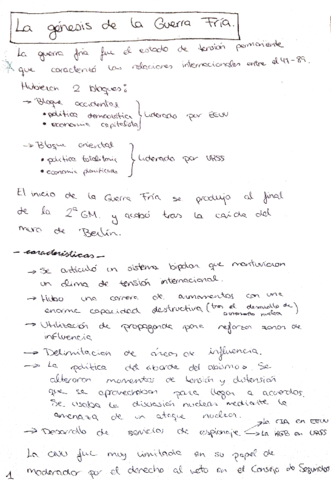 La génesis de la Guerra Fría.
La guerra fría fue el estado de tensión permanente
que caracterizó las relaciones internacionales entre el 47-89.
Hubieron 2 bloques:
→ Bloque occidental
• política democrática
• economía capitalista
Liderado por EEUU
→ Bloque oriental
• política totalitaria
• economía planificada
Liderado por URSS
El inicio de la Guerra Fría se produjo al final
de la 2ª GM. y acabó tras la caída del
muro de Berlín.
- características -
→ Se articuló un sistema bipolar que mantuvieron
un clima de tensión internacional.
→ Hubo una carrera de armamentos con una
enorme capacidad destructiva (tras el desarrollo del
armamento nuclear)
→ Utilización de propaganda para reforzar zonas de
influencia
→ Delimitación de áreas de influencia.
→ La política del «borde del abismo» Se
alteraron momentos de tensión y distensión
que se aprovechaban para llegar a acuerdos.
Se usaba la disuasión nuclear mediante la
amenaza de un ataque nuclear.
→ Desarrollo de servicios de espionaje
→ La CIA en EEUU
→ La KGB en URSS
La ONU fue muy limitada en su papel de
moderador por el derecho al veto en el Consejo de Seguridad
1